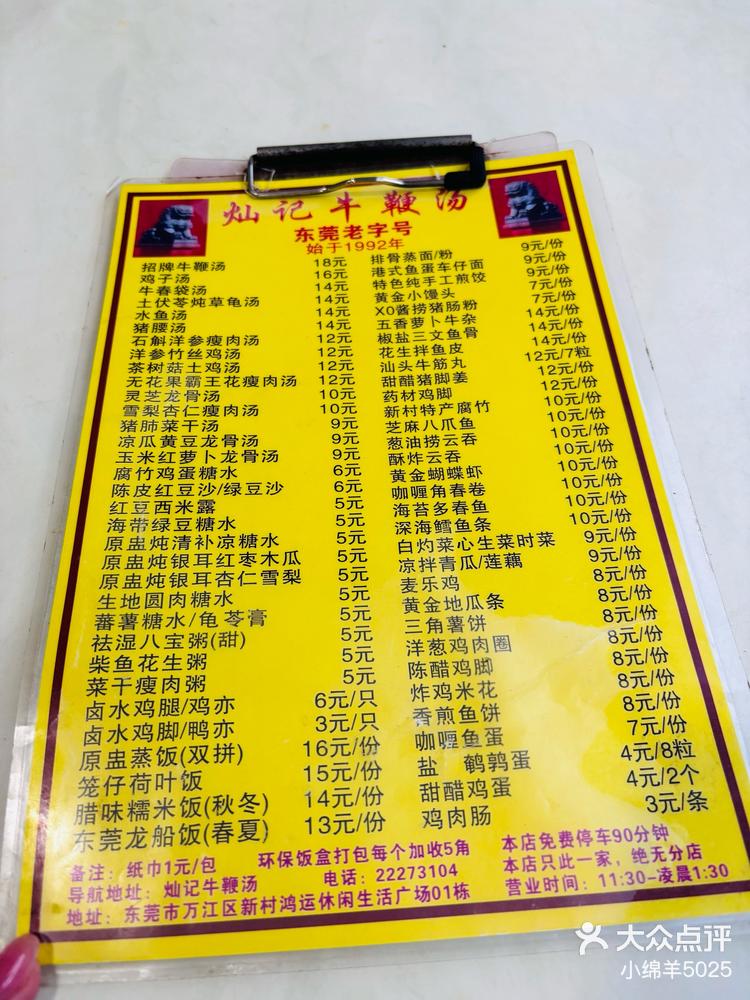 灿记牛鞭汤
东莞老字号
始于1992年
招牌牛鞭汤 18元
鸡子汤 16元
牛春袋汤 14元
土伏苓炖草龟汤 14元
水鱼汤 14元
猪腰汤 14元
石斛洋参瘦肉汤 12元
洋参竹丝鸡汤 12元
茶树菇土鸡汤 12元
无花果霸王花瘦肉汤 12元
灵芝龙骨汤 10元
雪梨杏仁瘦肉汤 10元
猪肺菜干汤 9元
凉瓜黄豆龙骨汤 9元
玉米红萝卜龙骨汤 9元
腐竹鸡蛋糖水 6元
陈皮红豆沙/绿豆沙 6元
红豆西米露 5元
海带绿豆糖水 5元
原盅炖清补凉糖水 5元
原盅炖银耳红枣木瓜 5元
原盅炖银耳杏仁雪梨 5元
生地圆肉糖水 5元
蕃薯糖水/龟苓膏 5元
祛湿八宝粥(甜) 5元
柴鱼花生粥 5元
菜干瘦肉粥 5元
卤水鸡腿/鸡亦 6元/只
卤水鸡脚/鸭亦 3元/只
原盅蒸饭(双拼) 16元/份
笼仔荷叶饭 15元/份
腊味糯米饭(秋冬) 14元/份
东莞龙船饭(春夏) 13元/份
排骨蒸面/粉 9元/份
港式鱼蛋车仔面 9元/份
特色纯手工煎饺 9元/份
黄金小馒头 7元/份
X0酱捞猪肠粉 7元/份
五香萝卜牛杂 14元/份
椒盐三文鱼骨 14元/份
花生拌鱼皮 14元/份
汕头牛筋丸 12元/7粒
甜醋猪脚姜 12元/份
药材鸡脚 12元/份
新村特产腐竹 10元/份
芝麻八爪鱼 10元/份
葱油捞云吞 10元/份
酥炸云吞 10元/份
黄金蝴蝶虾 10元/份
咖喱角春卷 10元/份
海苔多春鱼 10元/份
深海鳕鱼条 10元/份
白灼菜心生菜时菜 9元/份
凉拌青瓜/莲藕 9元/份
麦乐鸡 8元/份
黄金地瓜条 8元/份
三角薯饼 8元/份
洋葱鸡肉圈 8元/份
陈醋鸡脚 8元/份
炸鸡米花 8元/份
香煎鱼饼 8元/份
咖喱鱼蛋 7元/份
盐 鹌鹑蛋 4元/8粒
甜醋鸡蛋 4元/2个
鸡肉肠 3元/条
备注：纸巾1元/包 环保饭盒打包每个加收5角 本店免费停车90分钟
导航地址：灿记牛鞭汤 电话：22273104 本店只此一家，绝无分店
地址：东莞市万江区新村鸿运休闲生活广场01栋 营业时间：11:30-凌晨1:30
大众点评
小绵羊5025